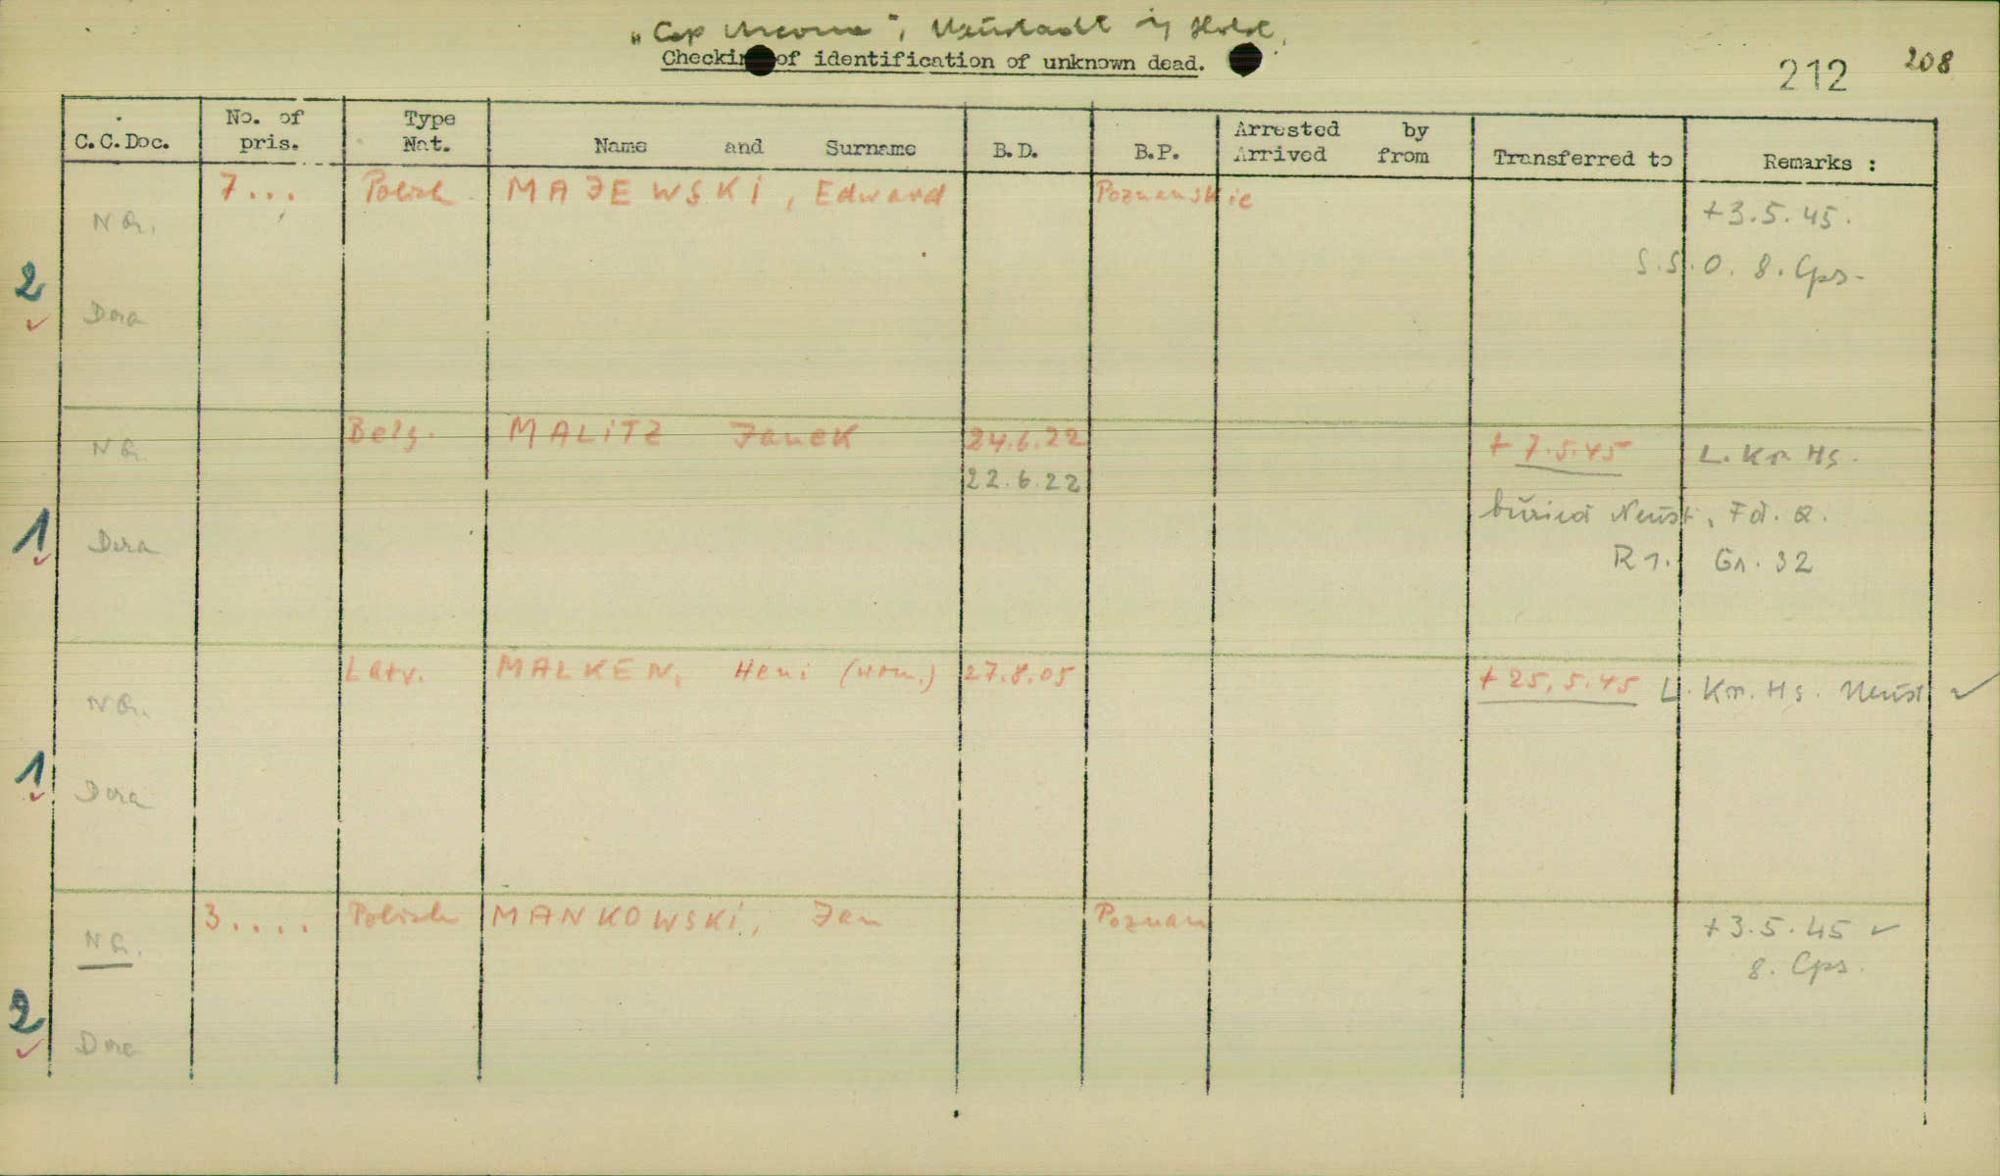 "Cap Arcona", Neustadt i/ Holst.
Checking of identification of unknown dead.
212 208
C.C.Doc. No. of pris. Type Nat. Name and Surname B.D. B.P. Arrested by Arrived from Transferred to Remarks :
7... Polish MAJEWSKI, Edward Poznanskie +3.5.45.
S.S.O. 8. Cps.
2
Dora
Belg. MALITZ Janek 24.6.22 + 7.5.45 L. Kr. Hs.
22.6.22
buried Neust, Fd. 2.
R 1. Gr. 32
1 Dora
Latv. MALKEN, Heni (wom.) 27.8.05 + 25.5.45 L. Kr. Hs. Neust
1
Dora
3.... Polish MANKOWSKI, Jan Poznan +3.5.45
8. Cps.
2
Dora